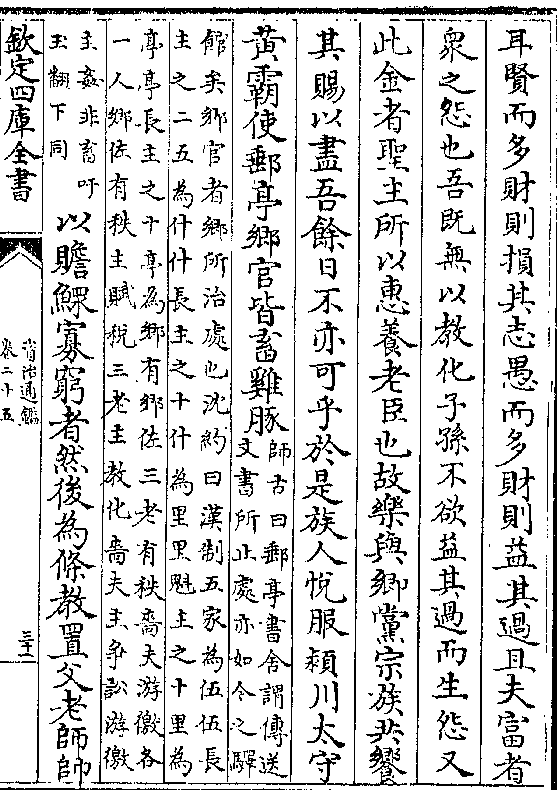 耳賢而多財則損其志愚而多財則益其過且夫富者
衆之怨也吾既無以教化子孫不欲益其過而生怨又
此金者聖主所以惠養老臣也故樂與鄉黨宗族共饗
其賜以盡吾餘日不亦可乎於是族人悅服潁川太守
黃霸使郵亭鄉官皆畜雞豚
師古曰郵亭書舍謂傳送
文書所止處亦如今之驛
館矣鄉官者鄉所治處也沈約曰漢制五家為伍伍長
主之二五為什什長主之十什為里里魁主之十里為
亭亭長主之十亭為鄉有鄉佐三老有秩嗇夫游徼各
一人鄉佐有秩主賦稅三老主教化嗇夫主爭訟游徼
主姦非畜吁
玉翻下同
以贍鰥寡窮者然後為條教置父老師帥
欽定四庫全書
資治通鑑
卷二十五
三十一